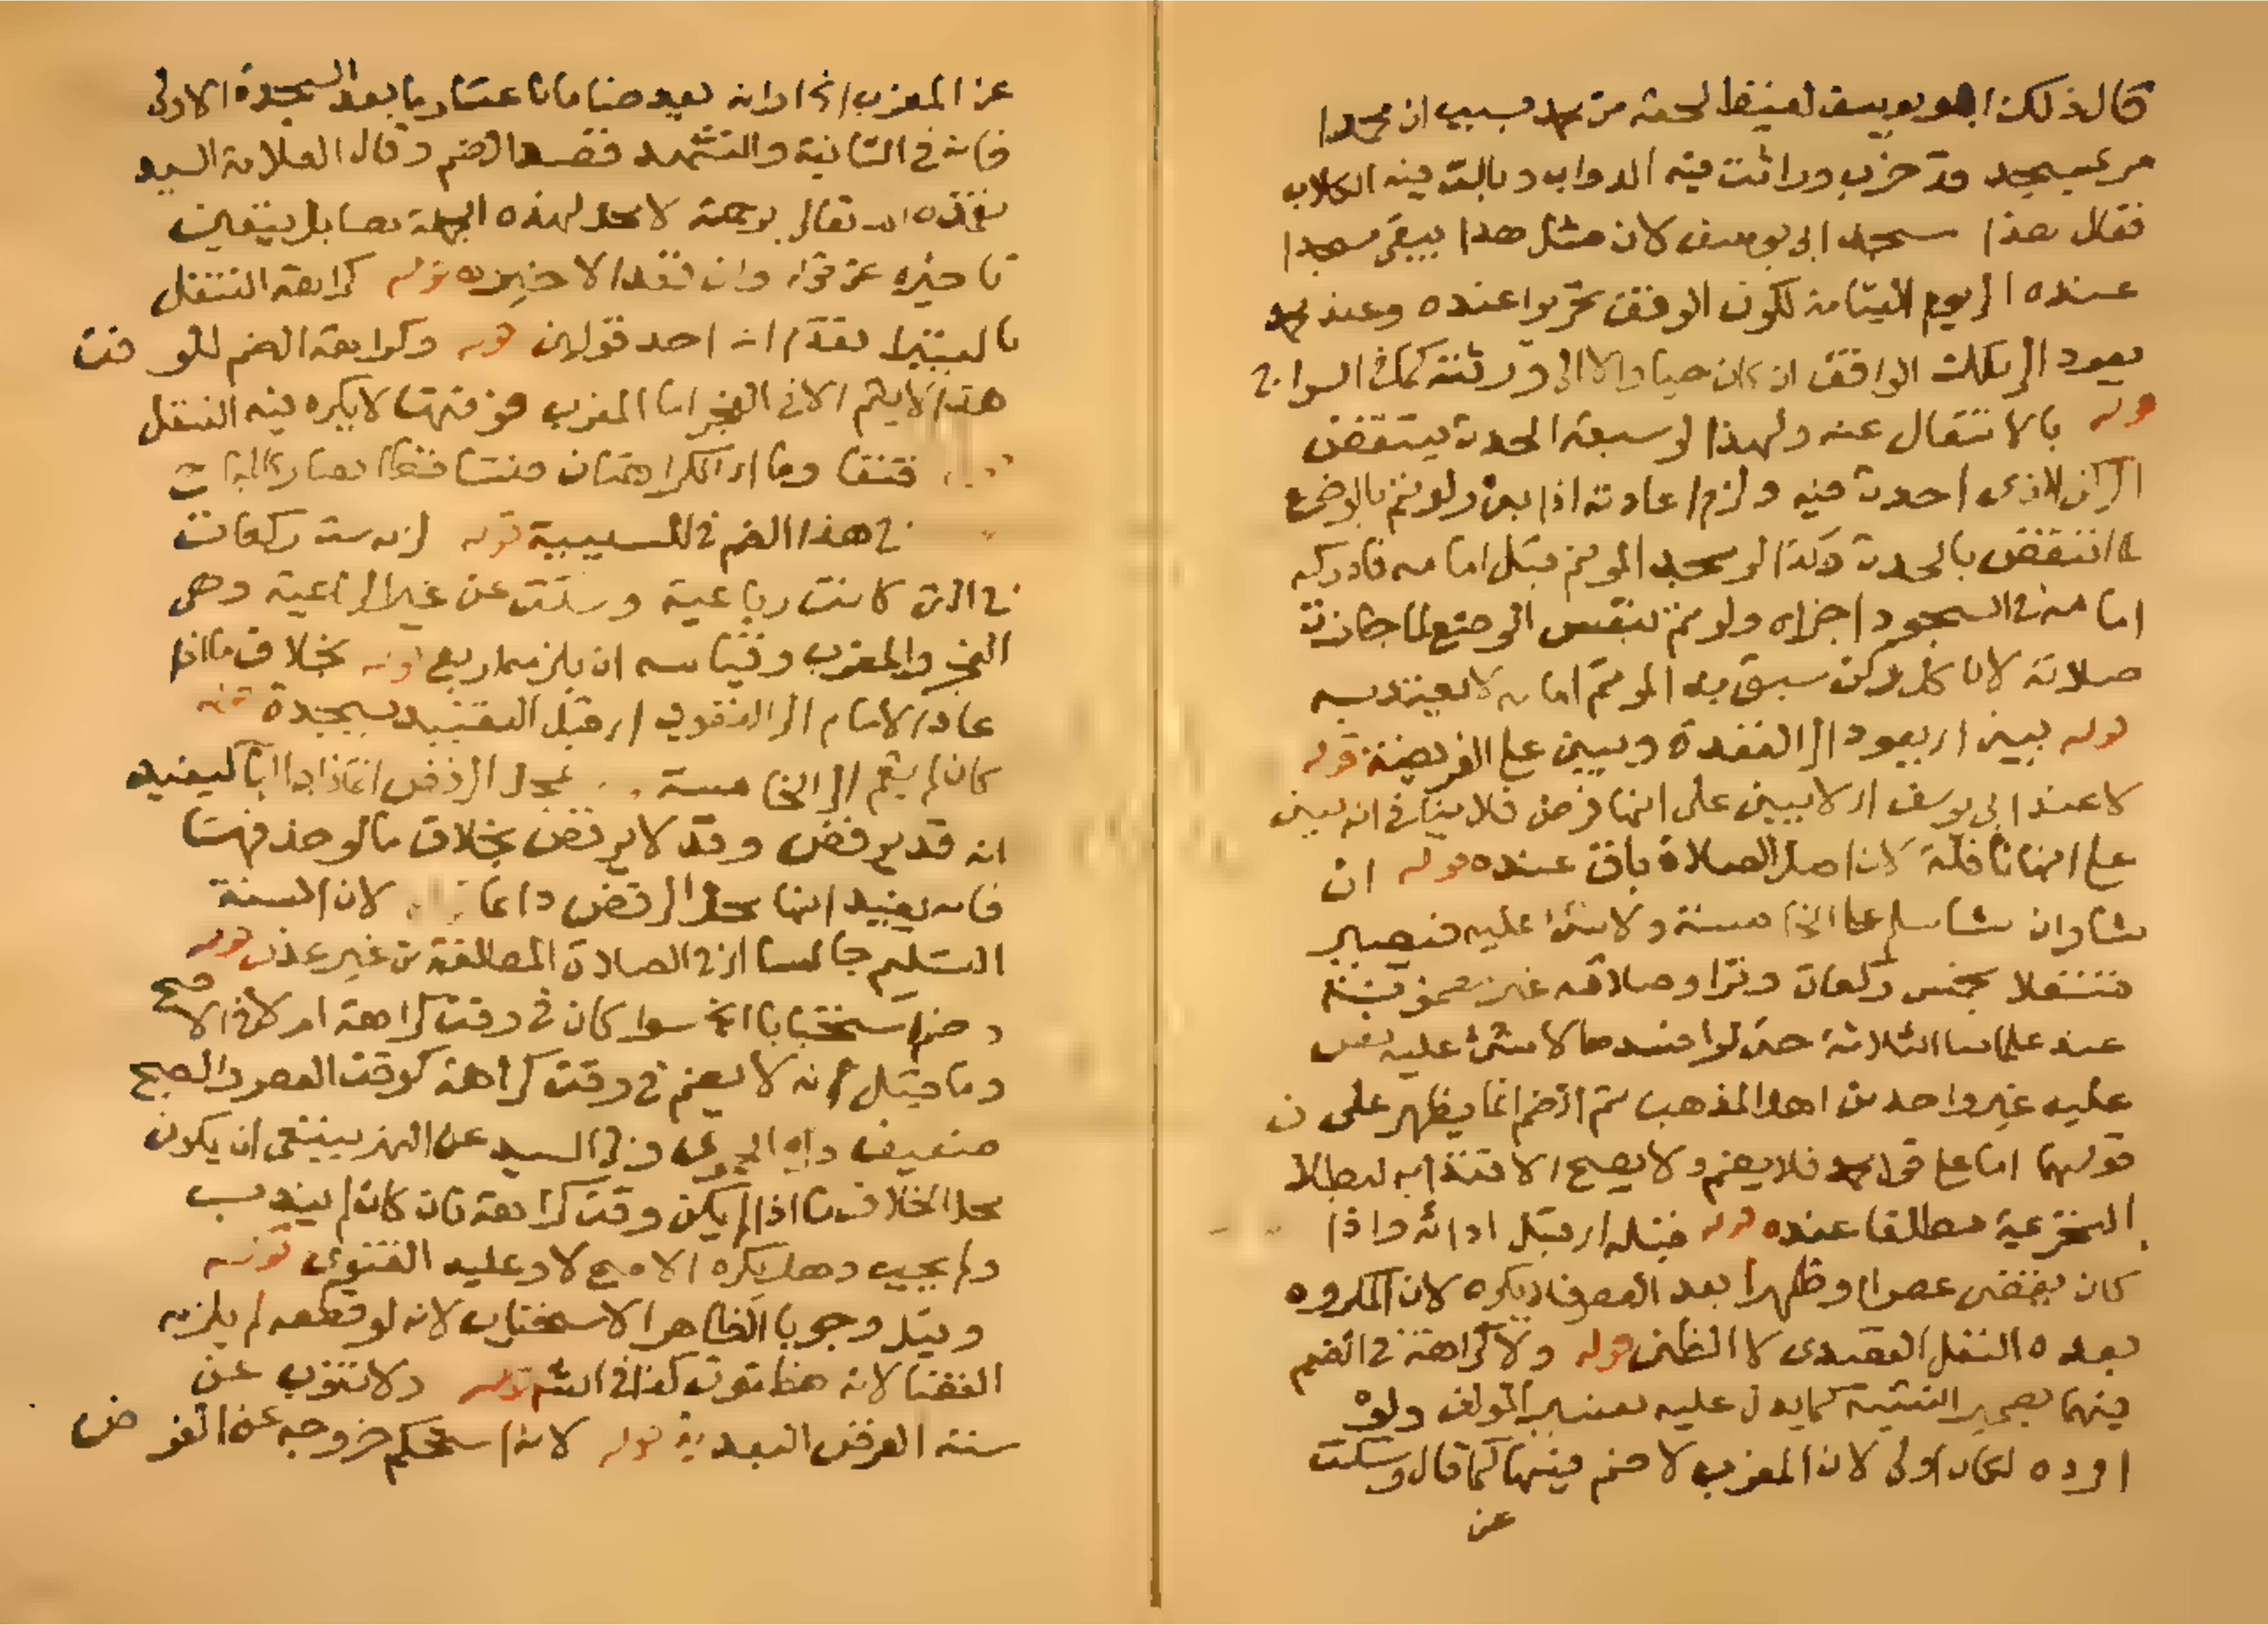 قال ذلك ابو يوسف لغيظ لحقه من محمد بسبب ان محمدا
مر بمسجد قد خرب وراثت فيه الدواب وبالت فيه الكلاب
فقال هذا مسجد ابى يوسف لان مثل هذا يبقى مسجدا
عنده الى يوم القيامة لكون الوقف تحريرا عنده وعند محمد
يعود الى ملك الواقف ان كان حيا والا الى ورثته كما فى السراج
قوله بالانتقال عنه ولهذا لو سبقه الحدث ينتقض
الركن الذى احدث فيه ولزم اعادته اذا بنى ولو تم بالوضع
لما انتقض بالحدث وكذا لو سجد المؤتم قبل امامه فادركه
امامه فى السجود اجزاه ولو تم بنفس الوضع لما جازت
صلاته لان كل ركن سبق به المؤتم امامه لا يعتد به
قوله يبنى اى يعود الى القعدة ويبنى على الفريضة قوله
لا عند ابى يوسف اى لا يبنى على انها فرض فلا ينافى انه يبنى
على انها نافلة لان اصل الصلاة باق عنده قوله ان
شا وان شا سلم على الخامسة ولا شئ عليه فيصير
متنفلا بخمس ركعات وترا وصلاته غير مضمونة
عند علمائنا الثلاثة حتى لو افسدها لا شئ عليه نص
عليه غير واحد من اهل المذهب ثم الضم انما يظهر على
قولهما اما على قول محمد فلا يضم ولا يصح الاقتدا به لبطلان
التحريمة مطلقا عنده قوله قبله اى قبل ادائه واذا
كان يقضى عصرا وظهرا بعد العصر فلا يكره لان المكروه
بعده النفل القصدى لا الظنى قوله ولا كراهة فى الضم
فيهما بضمير التثنية كما يدل عليه تفسير المؤلف ولو
افرده لكان اولى لان المغرب لا ضم فيها كما قال وسكت
عن
عن المغرب اى اذ انه بعد ضمها
فانه فى الثانية والتشهد فقصد الضم وقال العلامة السيد
تغمده الله تعالى برحمته لا محل لهذه الجملة هنا بل يتعين
تاخيره عن قوله وان قعد الاخيرة قوله كراهة التنفل
بالبتيرا تقدم انه احد قولين قوله وكراهة الضم للوقت
هذا لا يتم الا فى الفجر اما المغرب فوقتها لا يكره فيه التنفل
فى هذا الضم فى السببية قوله اى ست ركعات
فى التى كانت رباعية وسكت عن غير الرباعية وهى
الفجر والمغرب وقياسه ان يلزمه اربع قوله بخلاف ما اذا
عاد الامام الى القعود اى قبل التقييد بسجدة قوله
كان لم يقم الى الخامسة
انه قد يرفض وقد لا يرفض بخلاف ما لو حذفها
فانه يفيد انها محل الرفض دائما لان السنة
التسليم جالسا اى فى الصلاة المطلقة من غير عذر قوله
وضم استحبابا الخ سوا كان فى وقت كراهة ام لا فى الاصح
وما قيل انه لا يضم فى وقت كراهة كوقت العصر والصبح
ضعيف وفى السيد عن النهر ينبغى ان يكون
محل الخلاف ما اذا لم يكن وقت كراهة فان كان لم يندب
ولم يجب وهل يكره الاصح لا وعليه الفتوى قوله
وقيل وجوبا الظاهر الاستحباب لانه لو قطعه لم يلزمه
القضا لانه مظنون كذا فى الشرح قوله ولا تنوب عن
سنة الفرض البعدية قوله لانه استحكم خروجه عن الفرض